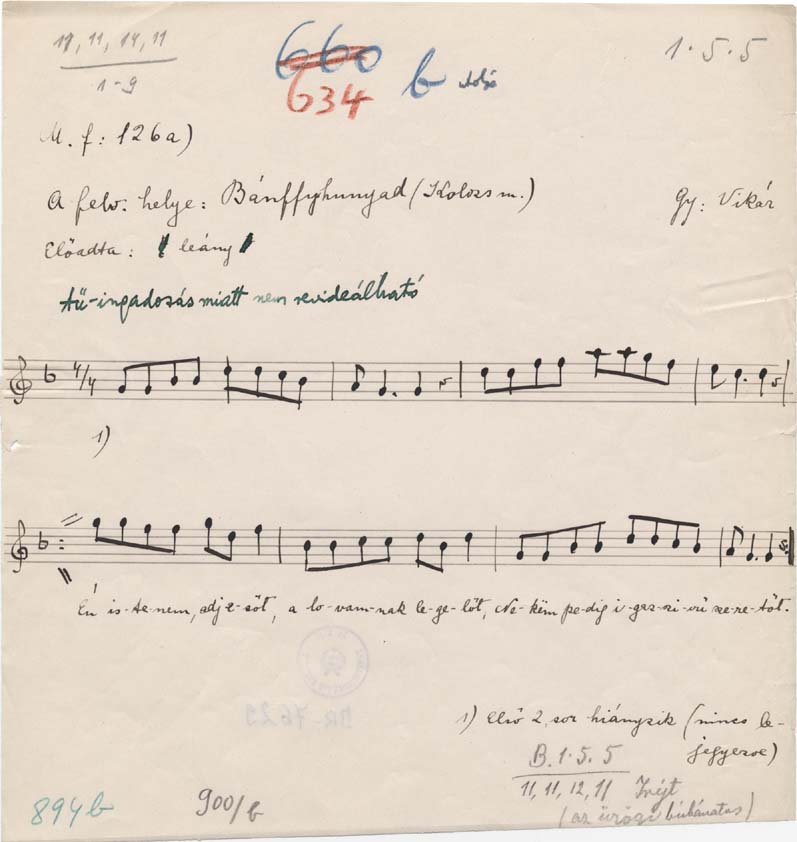 11, 11, 14, 11
1-9
660
634 b
1. 5. 5
M. f: 126a)
A felv. helye: Bánffyhunyad (Kolozs m.)
Gy: Vikár
Előadta: leány
Tű-ingadozás miatt nem revideálható
4/4
1)
Én is-te-nem, adj e-sőt, a lo-vam-nak le-ge-lőt, Ne-këm pe-dig i-gaz-szi-vű sze-re-tőt.
1) Első 2 sor hiányzik (nincs le-
jegyezve)
B. 1. 5. 5
11, 11, 12, 11
894b
900/b